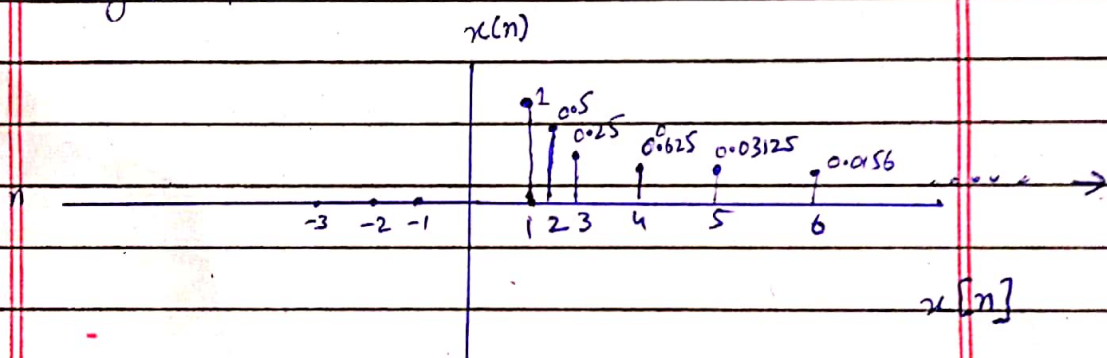 x(n)
1
0.5
0.25
0.0625
0.03125
0.0156
n
-3 -2 -1 1 2 3 4 5 6
x[n]